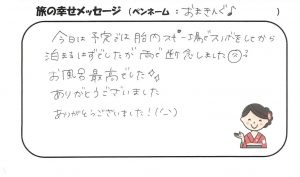 旅の幸せメッセージ (ペンネーム : おまきんぐ♪ )
今日は予定では胎内スポーツ場でスノボをしてから
泊まるはずでしたが雨で断念しました
お風呂最高でした
ありがとうございました
ありがとうございました!(^-^)